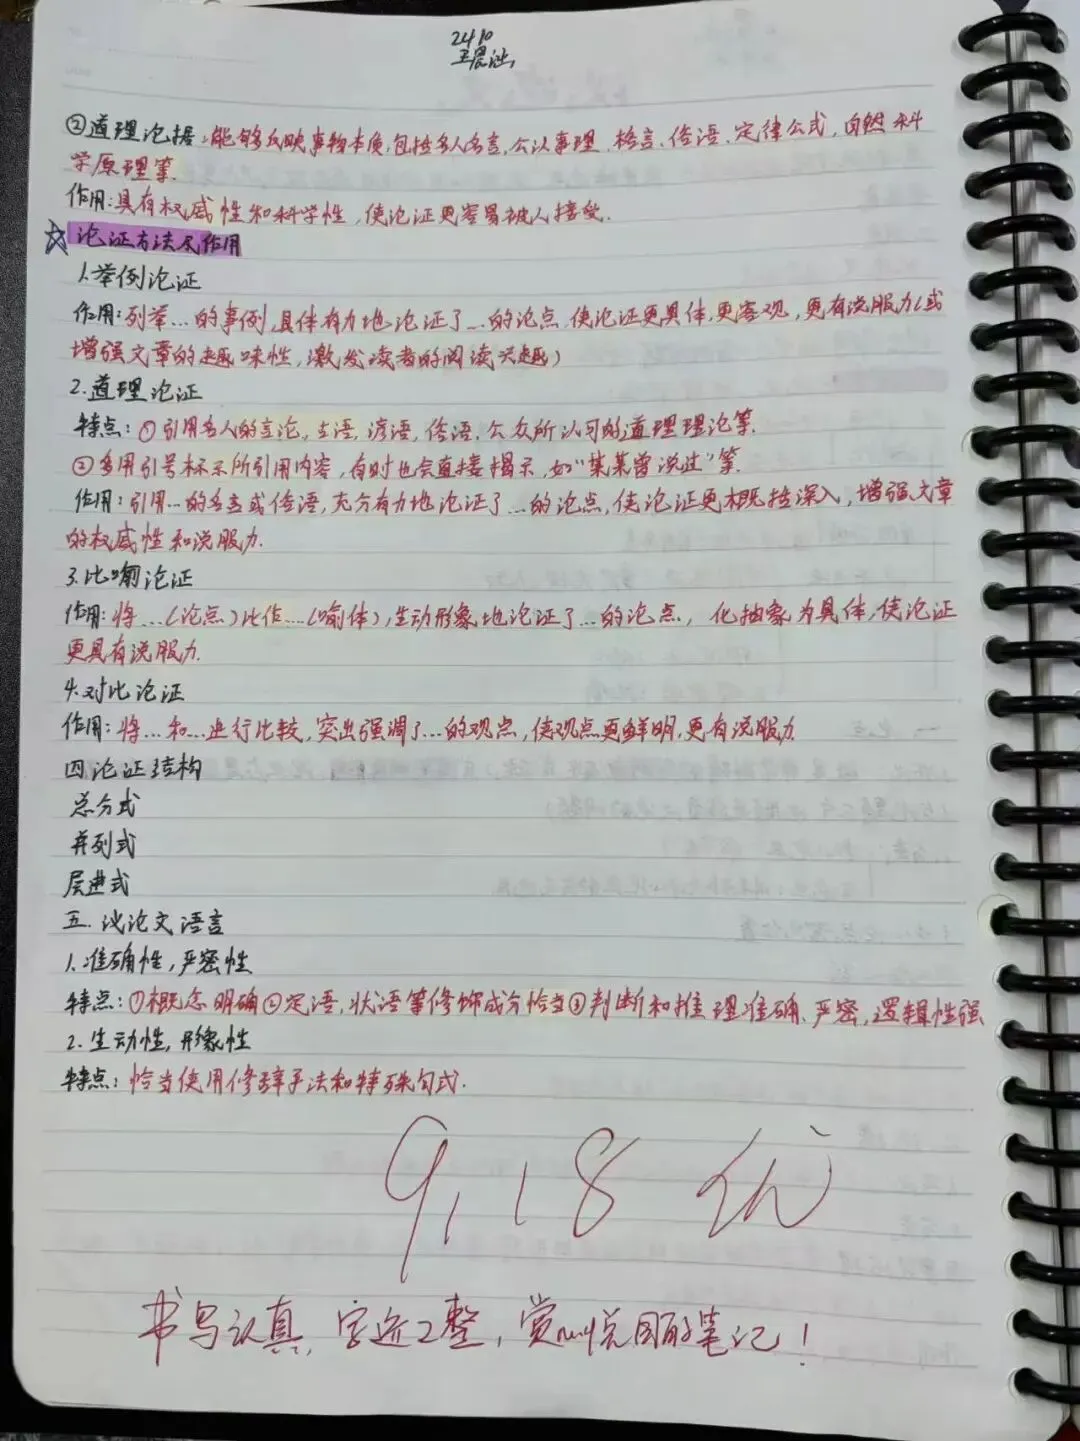 2410
②道理论据:能够反映事物本质,包括名人名言,公认事理、格言、俗语、定律公式,自然科
学原理等.
作用:具有权威性和科学性,使论证更容易被人接受.
☆论证方法及作用
1.举例论证
作用:列举…的事例,具体有力地论证了…的论点,使论证更具体,更客观,更有说服力(或
增强文章的趣味性,激发读者的阅读兴趣)
2.道理论证
特点:①引用名人的言论,古语,谚语,俗语,公众所认可的道理理论等.
②多用引号标示所引用内容,有时也会直接揭示,如“某某曾说过”等.
作用:引用…的名言或俗语,充分有力地论证了…的论点,使论证更概括深入,增强文章
的权威性和说服力.
3.比喻论证
作用:将…(论点)比作…(喻体),生动形象地论证了…的论点,化抽象为具体,使论证
更具有说服力.
4.对比论证
作用:将…和…进行比较,突出强调了…的观点,使观点更鲜明,更有说服力.
四.论证结构
总分式
并列式
层进式
五.议论文语言
1.准确性,严密性
特点:①概念明确②定语,状语等修饰成分恰当③判断和推理准确、严密,逻辑性强
2.生动性,形象性
特点:恰当使用修辞手法和特殊句式.
9.18 优
书写认真,字迹工整,赏心悦目的笔记!